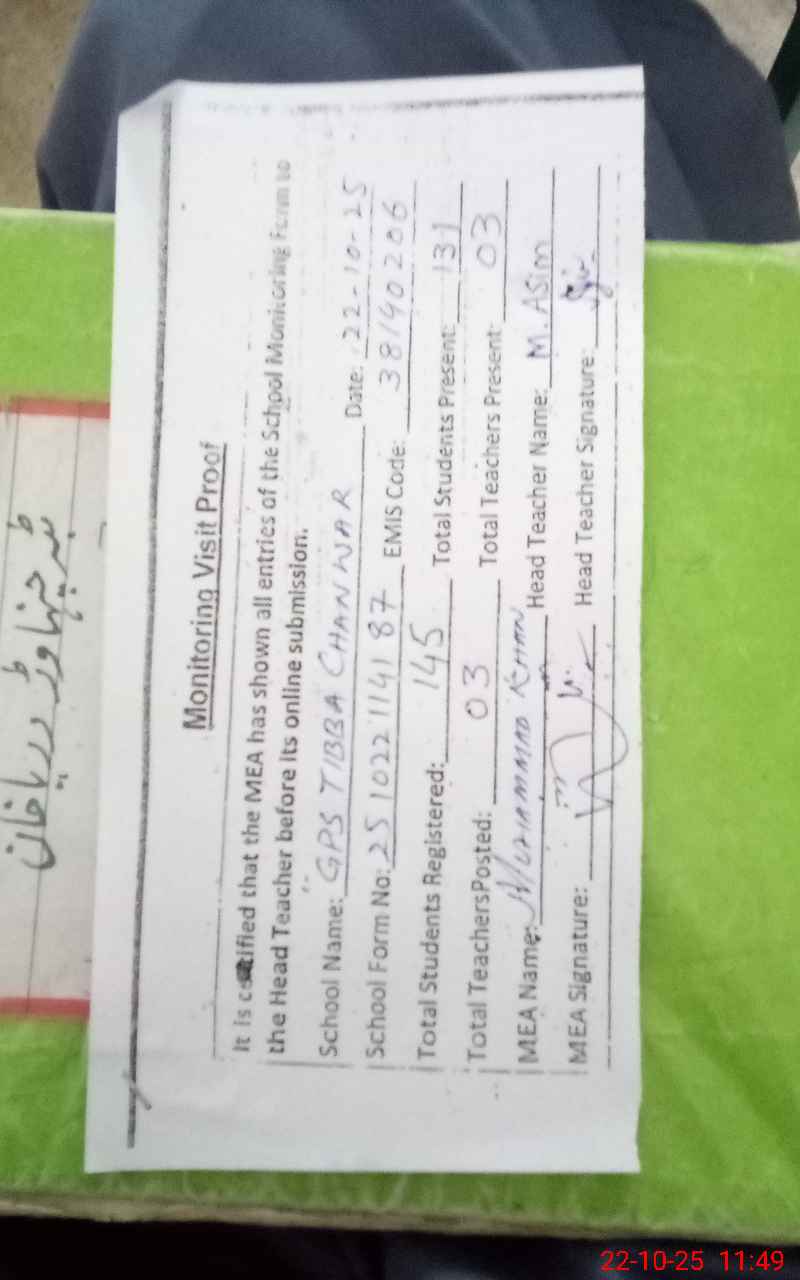 ٹبہ چنہاوڑ دریا خان
Monitoring Visit Proof
It is certified that the MEA has shown all entries of the School Monitoring Form to
the Head Teacher before its online submission.
School Name: GPS TIBBA CHANWAR Date: 22-10-25
School Form No: 25102211 4187 EMIS Code: 38140206
Total Students Registered: 145 Total Students Present: 131
Total Teachers Posted: 03 Total Teachers Present: 03
MEA Name: MUHAMMAD KHAN Head Teacher Name: M. ASim
MEA Signature: Head Teacher Signature:
22-10-25 11:49